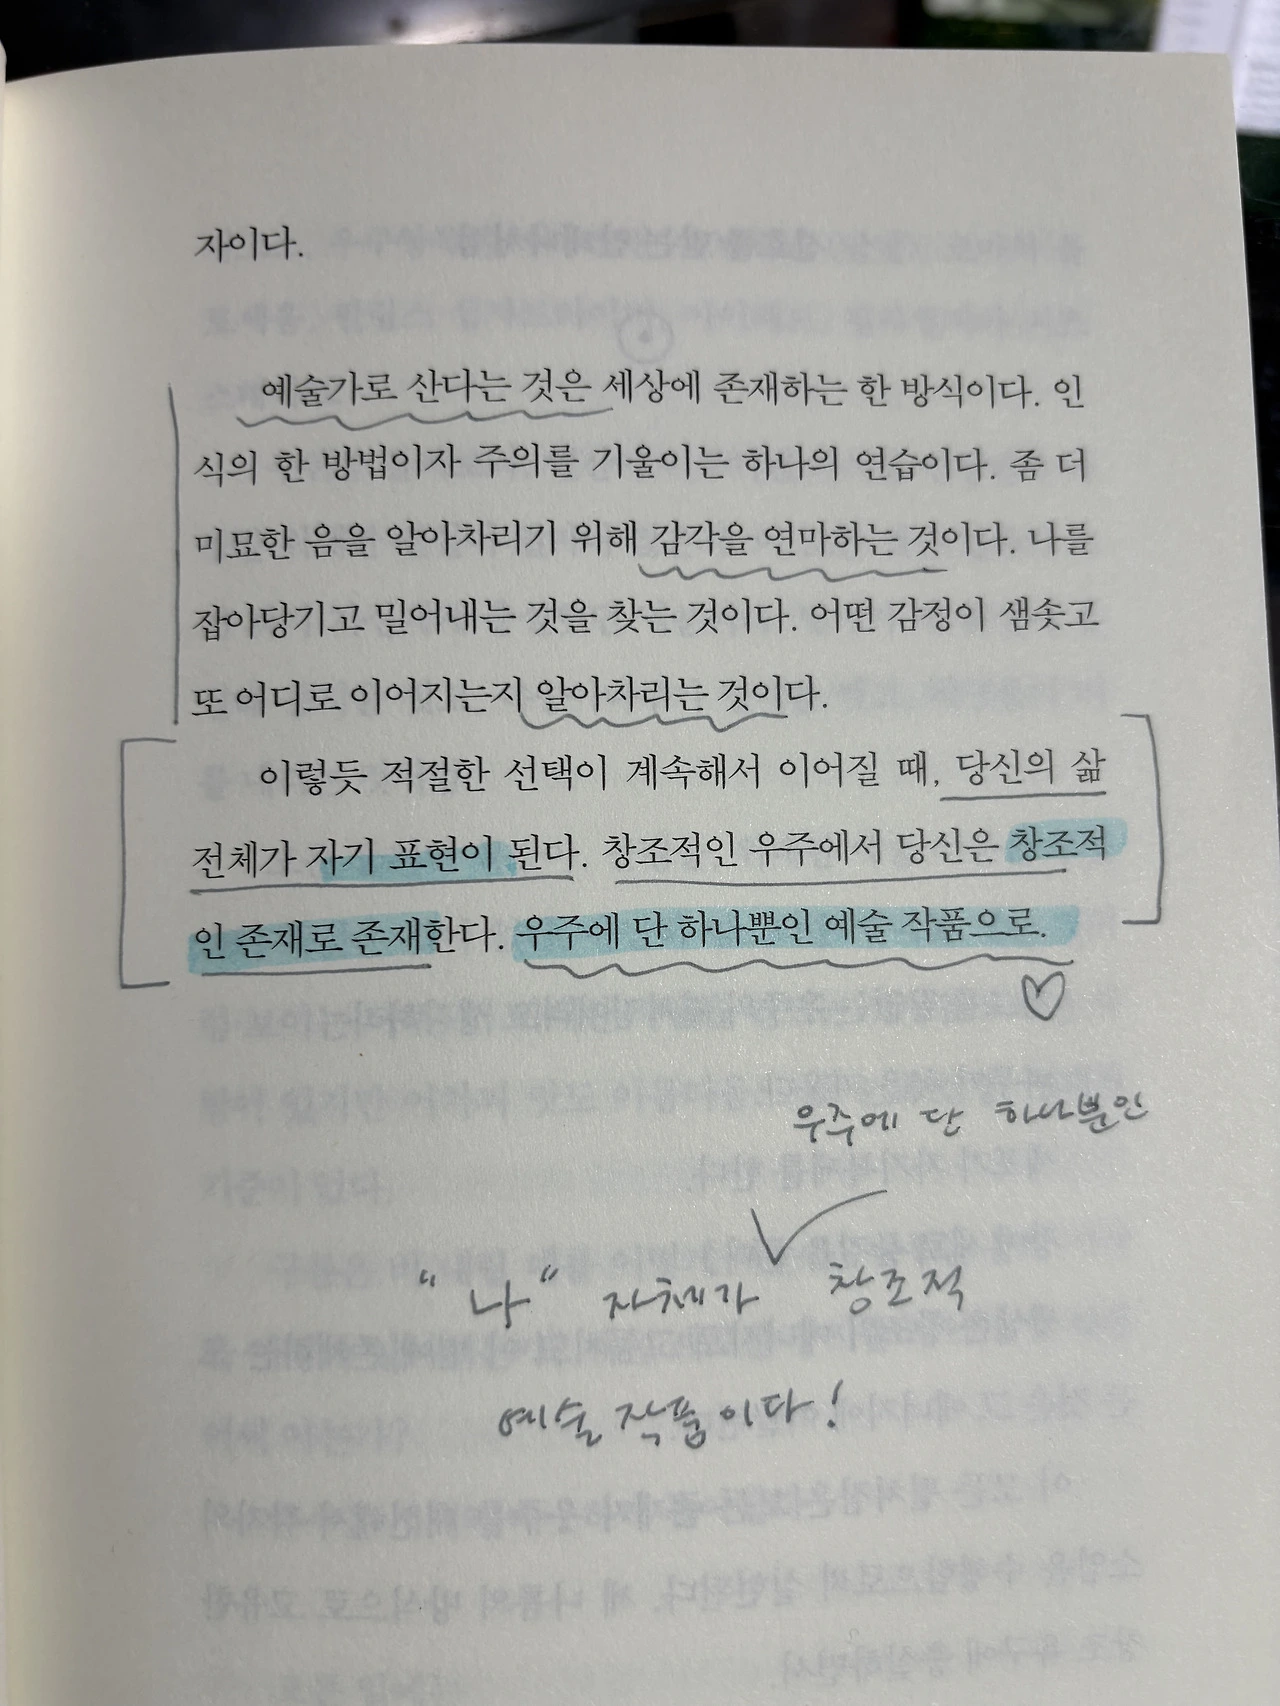 자이다.
예술가로 산다는 것은 세상에 존재하는 한 방식이다. 인
식의 한 방법이자 주의를 기울이는 하나의 연습이다. 좀 더
미묘한 음을 알아차리기 위해 감각을 연마하는 것이다. 나를
잡아당기고 밀어내는 것을 찾는 것이다. 어떤 감정이 샘솟고
또 어디로 이어지는지 알아차리는 것이다.
이렇듯 적절한 선택이 계속해서 이어질 때, 당신의 삶
전체가 자기 표현이 된다. 창조적인 우주에서 당신은 창조적
인 존재로 존재한다. 우주에 단 하나뿐인 예술 작품으로.
우주에 단 하나뿐인
"나" 자체가 창조적
예술 작품이다!